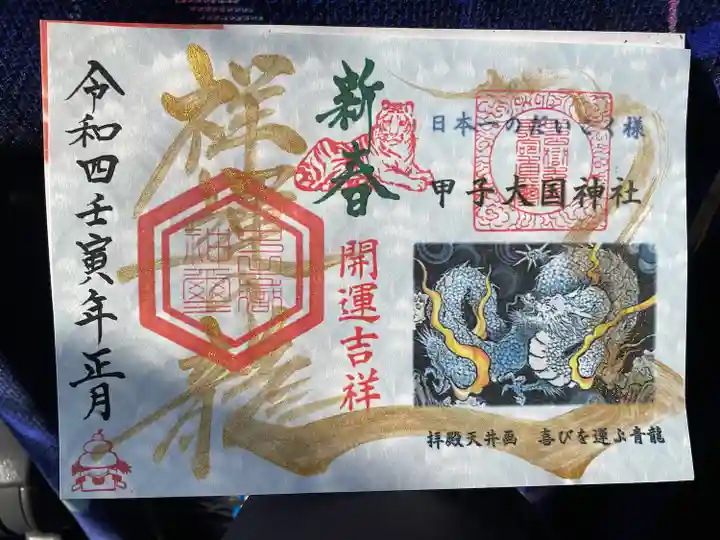 日本一のだいこく様
甲子大国神社
新春
開運吉祥
祥運龍
令和四壬寅年正月
拝殿天井画 喜びを運ぶ青龍